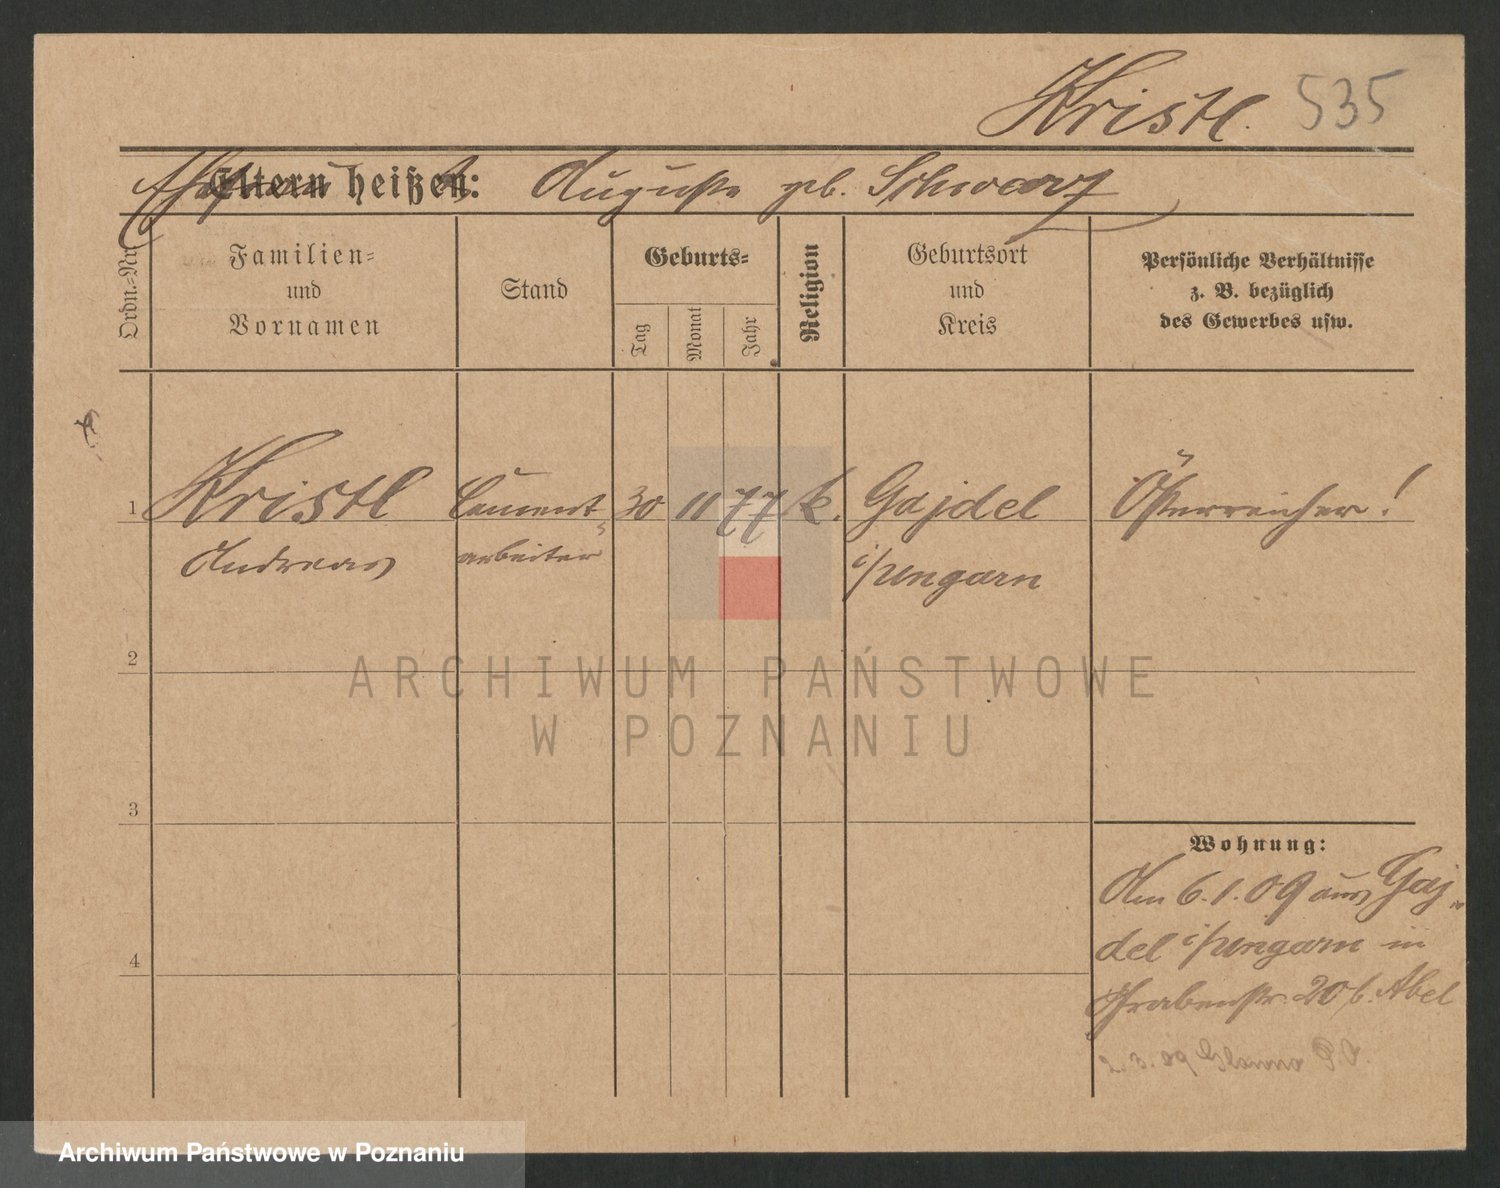 Kristl. 535
Eltern heißen: Auguste geb. Schwarz
Ordn.-Nr.
Familien-
und
Vornamen
Stand
Geburts-
Tag
Monat
Jahr
Religion
Geburtsort
und
Kreis
Persönliche Verhältnisse
z. B. bezüglich
des Gewerbes usw.
1 Kristl Cement- 30 11 77 k. Gajdel Österreicher!
Andreas arbeiter i/Ungarn
2
3
4
Wohnung:
Am 6.1.09 aus Gaj-
del i/Ungarn in
Grabenstr. 20 b. Abel
2. 3. 09
ARCHIWUM PAŃSTWOWE
W POZNANIU
Archiwum Państwowe w Poznaniu